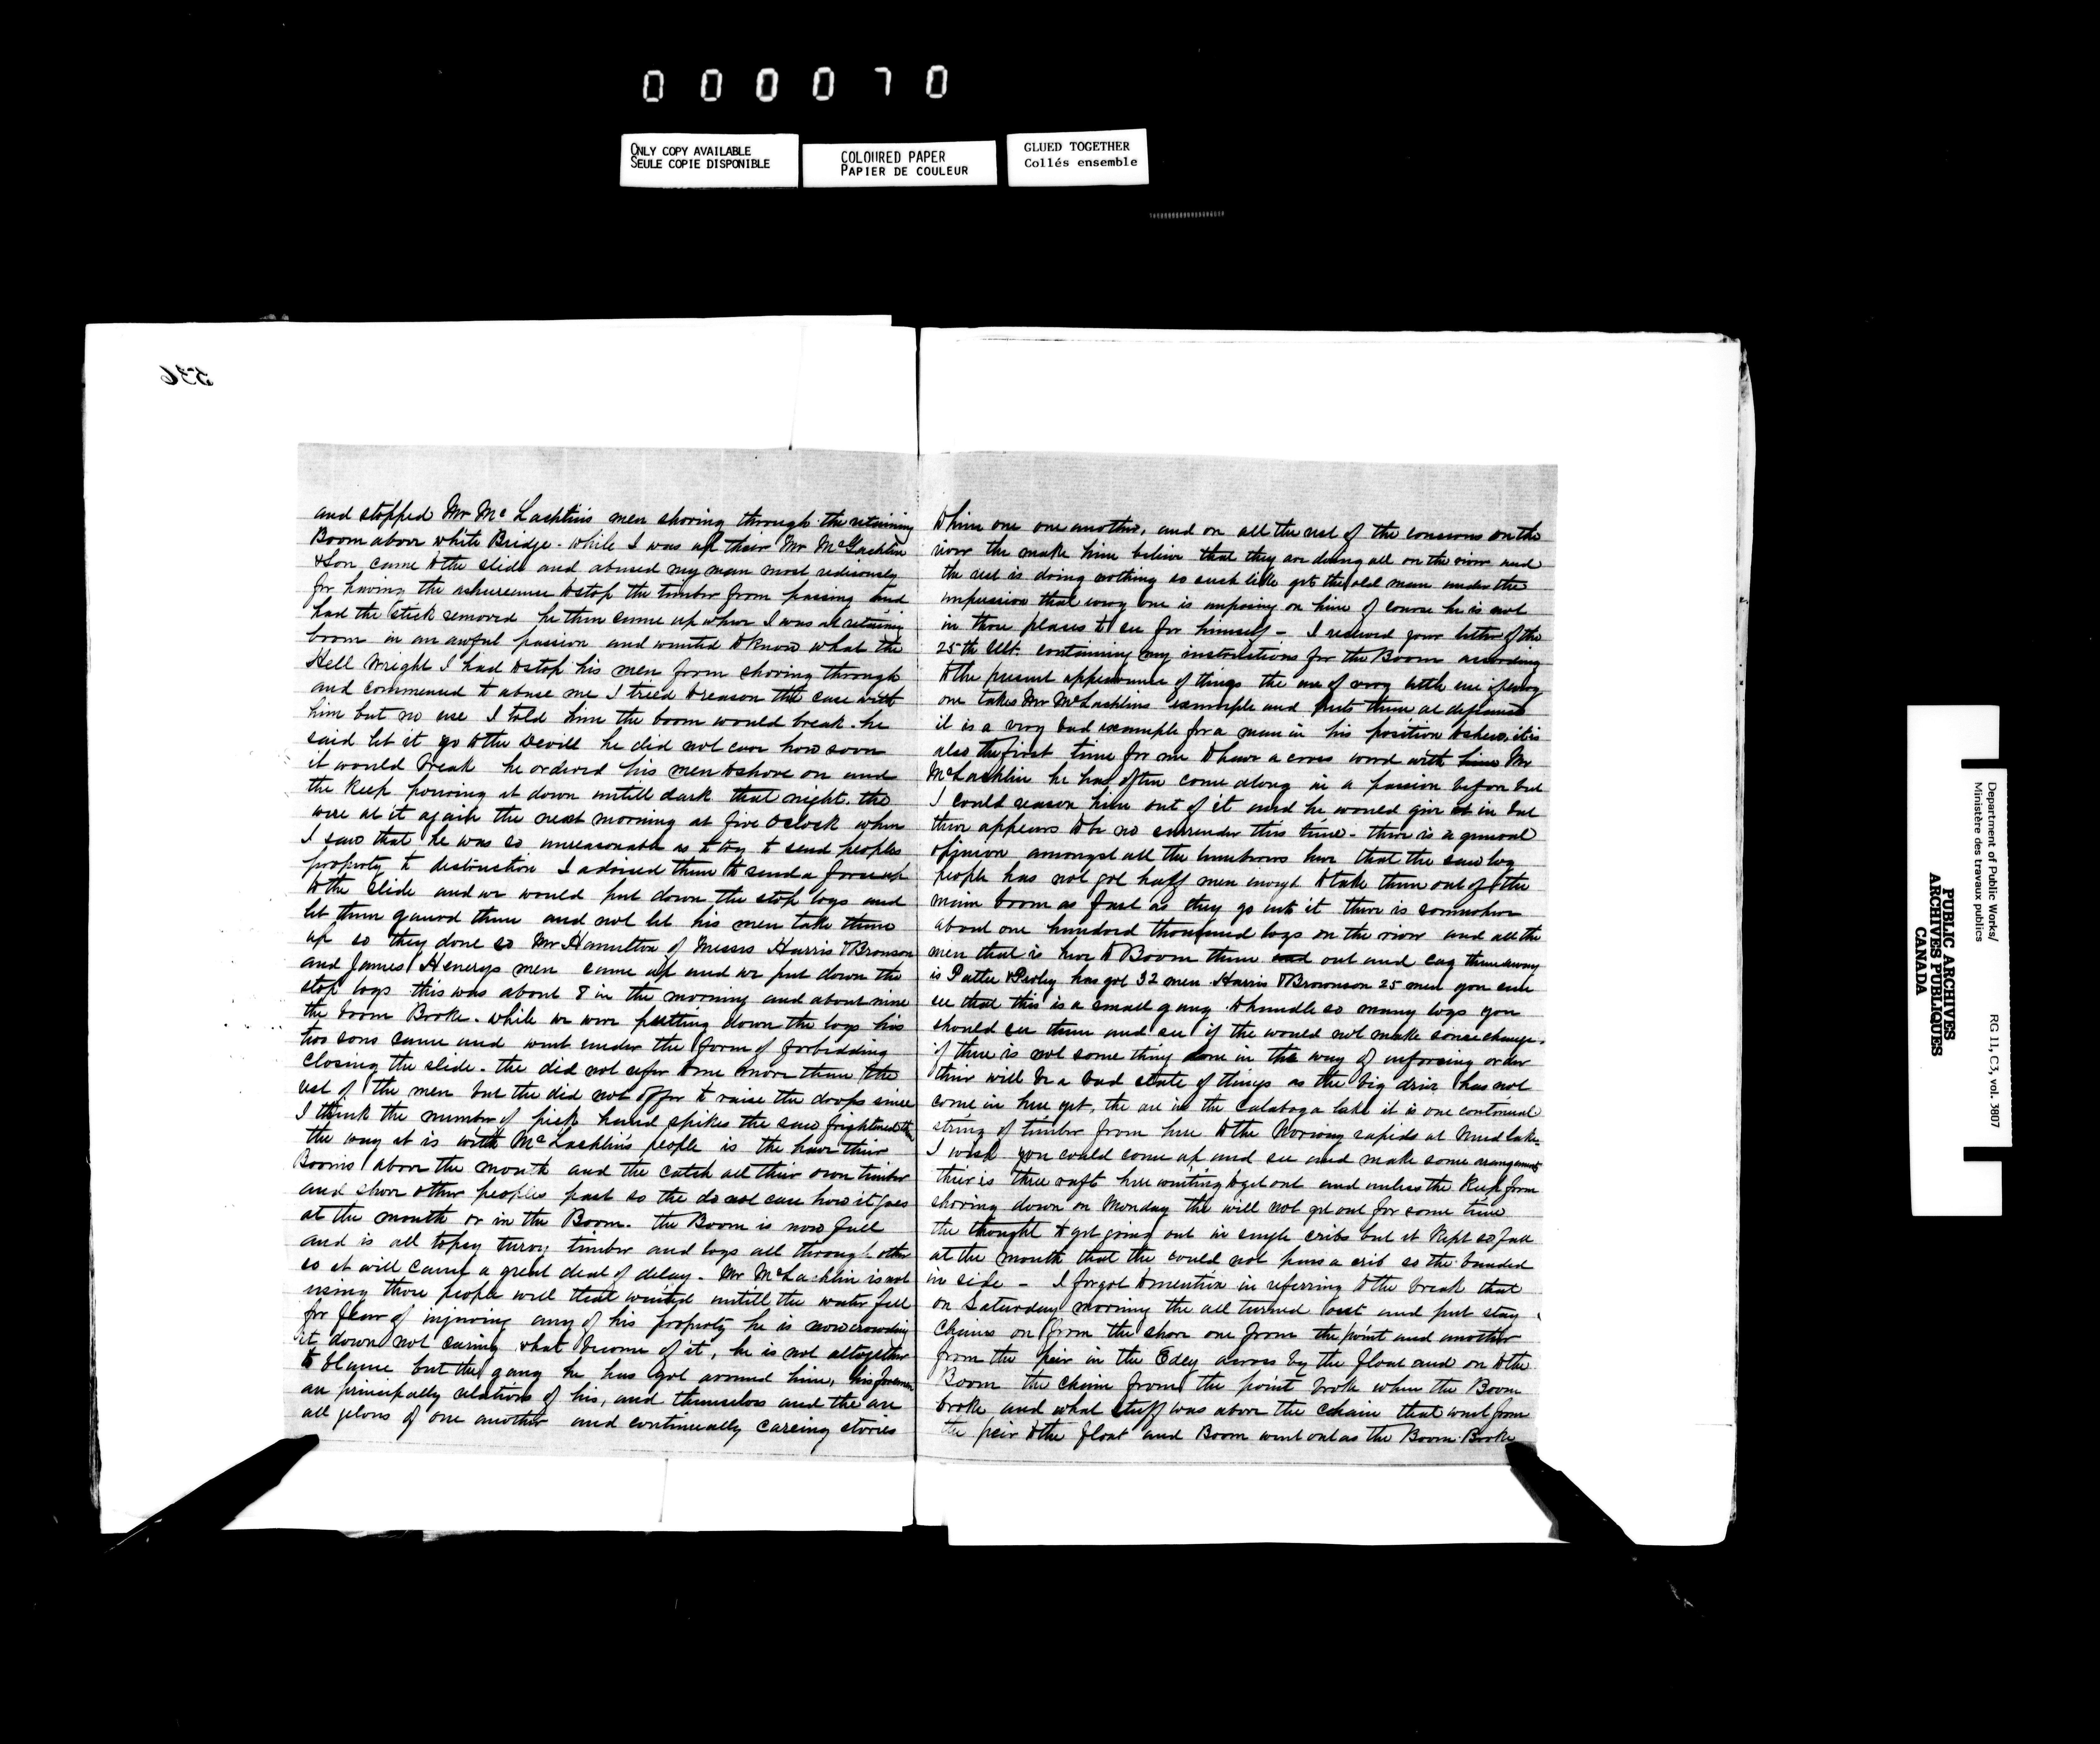 000070
ONLY COPY AVAILABLE
SEULE COPIE DISPONIBLE
COLOURED PAPER
PAPIER DE COULEUR
GLUED TOGETHER
Collés ensemble
536
and stopped Mr McLachlins men shoving through the retaining
Boom above white Bridge. While I was up their Mr McLachlin
& Son came to the slide and abused my man most rediculously
for having the ashureance to stop the timber from passing and
had the stick removed he then came up where I was at retaining
boom in an awful passion and wanted to know what the
Hell wright I had to stop his men from shoving through
and commenced to abuse me I tried to reason the case with
him but no use I told him the boom would break. he
said let it go to the Devill he did not care how soon
it would break he ordered his men to shove on and
the keep pouring it down untill dark that night. the
were at it again the next morning at five Oclock when
I saw that he was so unreasonable as to try to send peoples
property to distruction I advised them to send a force up
to the slide and we would put down the stop logs and
let them gaurd them and not let his men take them
up so they done so Mr Hamelton of Messrs Harris & Bronson
and James Henerys men came up and we put down the
stop logs this was about 8 in the morning and about nine
the boom Broke. while we were putting down the logs his
two sons came and went under the form of forbidding
closing the slide. the did not say to me more than the
rest of the men but the did not offer to raise the doops since
I think the number of pick hand spikes the saw frightened them
the way it is with McLachlin's people is the have their
Booms above the mouth and the catch all their own timber
and shove other peoples past so the do not care how it goes
at the mouth or in the Boom. the Boom is now full
and is all topsy turvy timber and logs all through other
so it will cause a great deal of delay. Mr McLachlin is not
using those people well that waited untill the water fell
for fear of injuring any of his property he is now crowding
it down not caring what become of it, he is not altogether
to blame but the gang he has got around him, his foremen
are principally relations of his, and themselves and the are
all jelous of one another and continually carcing stories
to him one one another, and on all the rest of the concerns on the
river the make him believe that they are doing all on the river and
the rest is doing nothing so such like gets the old man under the
impression that every one is imposing on him of course he is not
in those places to see for himself - I received your letter of the
25th Ult. containing my instructions for the Boom according
to the present appearance of things the are of very little use if every
one takes Mr McLachlins example and puts them at defiance
it is a very bad example for a man in his position to shew, it is
also the first time for me to have a cross word with him Mr
McLachlin he has often come along in a passion before but
I could reason him out of it and he would give it in but
there appears to be no surrender this time - there is a general
opinion amongst all the lumbrers here that the saw log
people has not got half men enough to take them out of the
main boom as fast as they go into it there is somewhere
about one hundred thousand logs on the river and all the
men that is here to Boom them out and cag them away
is Pattee & Perley has got 32 men Harris & Brownson 25 men you can
see that this is a small gang to handle so many logs you
should see them and see if the would not make some change.
if there is not some thing done in the way of inforcing order
their will be a bad state of things as the big drive has not
come in here yet, the are in the Calaboga lake it is one continual
string of timber from here to the rapids at Mud lake.
I wish you could come up and see and make some arangements
their is three raft here waiting to get out and unless the keep from
shoving down on Monday the will not get out for some time
the thought to get going out in single cribs but it kept so full
at the mouth that the could not pass a crib so the banded
in side - I forgot to mention in referring to the break that
on Saturday morning the all turned out and put stay
Chains on from the shore one from the point and another
from the peir in the Edey across by the float and on to the
Boom the chain from the point broke when the Boom
broke and what stuff was above the chain that went from
the peir to the float and Boom went out as the Boom Broke
Department of Public Works/
Ministère des travaux publics
RG 11, C3, vol. 3807
PUBLIC ARCHIVES
ARCHIVES PUBLIQUES
CANADA